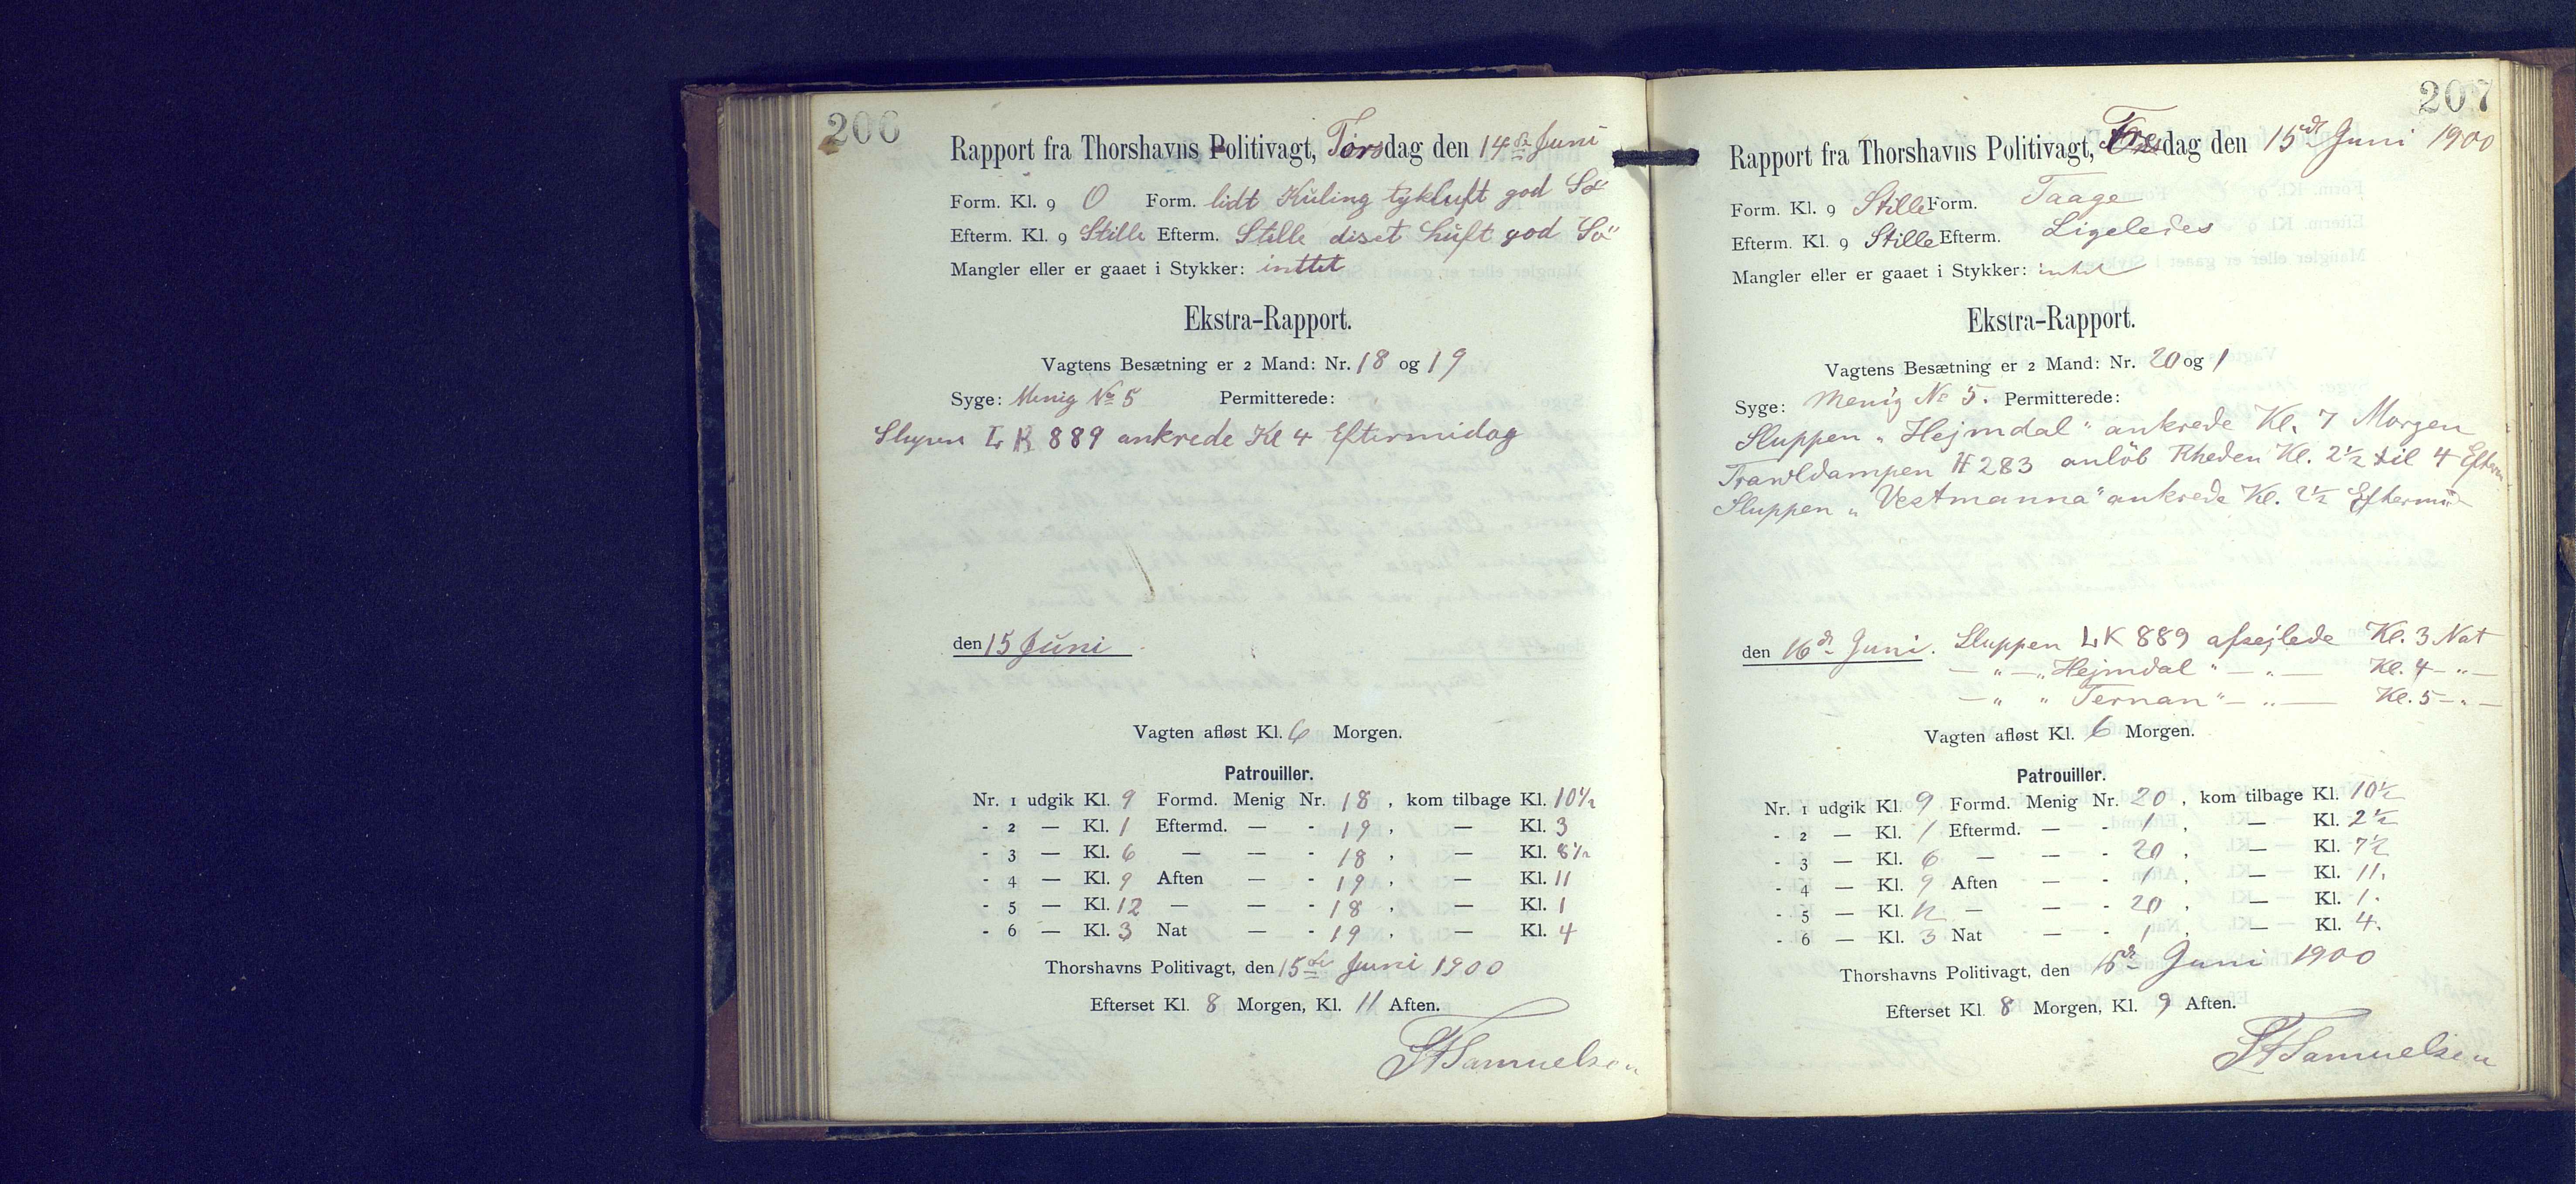 206
Rapport fra Thorshavns Politivagt, Torsdag den 14de Juni
Form. Kl. 9 O Form. lidt Kuling tykluft god Sø
Efterm. Kl. 9 Stille Efterm. Stille diset Luft god Sø
Mangler eller er gaaet i Stykker: inttet
Ekstra-Rapport.
Vagtens Besætning er 2 Mand: Nr. 18 og 19
Syge: Menig No 5 Permitterede:
Slupen LK 889 ankrede Kl 4 Eftermidag
den 15 Juni
Vagten afløst Kl. 6 Morgen.
Patrouiller.
Nr. 1 udgik Kl. 9 Formd. Menig Nr. 18, kom tilbage Kl. 10½
- 2 — Kl. 1 Eftermd. — - 19, — Kl. 3
- 3 — Kl. 6 — — - 18, — Kl. 8½
- 4 — Kl. 9 Aften — - 19, — Kl. 11
- 5 — Kl. 12 — — - 18, — Kl. 1
- 6 — Kl. 3 Nat — - 19, — Kl. 4
Thorshavns Politivagt, den 15de Juni 1900
Efterset Kl. 8 Morgen, Kl. 11 Aften.
Samuelsen
207
Rapport fra Thorshavns Politivagt, Fredag den 15de Juni 1900
Form. Kl. 9 Stille Form. Taage
Efterm. Kl. 9 Stille Efterm. Ligeledes
Mangler eller er gaaet i Stykker: intet
Ekstra-Rapport.
Vagtens Besætning er 2 Mand: Nr. 20 og 1
Syge: Menig No 5. Permitterede:
Sluppen „Hejmdal" ankrede Kl. 7 Morgen
Trawldampen H 283 anløb Rheden Kl. 2½ til 4 Efterm.
Sluppen „Vestmanna" ankrede Kl. 2½ Eftermid
den 16de Juni. Sluppen LK 889 afsejlede Kl. 3 Nat
— „ — „Hejmdal" — „ — Kl. 4 — „ —
— „ „Ternan" — „ — Kl. 5 — „ —
Vagten afløst Kl. 6 Morgen.
Patrouiller.
Nr. 1 udgik Kl. 9 Formd. Menig Nr. 20, kom tilbage Kl. 10½
- 2 — Kl. 1 Eftermd. — - 1, — Kl. 2½
- 3 — Kl. 6 — — - 20, — Kl. 7½
- 4 — Kl. 9 Aften — - 1, — Kl. 11.
- 5 — Kl. 12 — — - 20, — Kl. 1.
- 6 — Kl. 3 Nat — - 1, — Kl. 4.
Thorshavns Politivagt, den 15de Juni 1900
Efterset Kl. 8 Morgen, Kl. 9 Aften.
Samuelsen